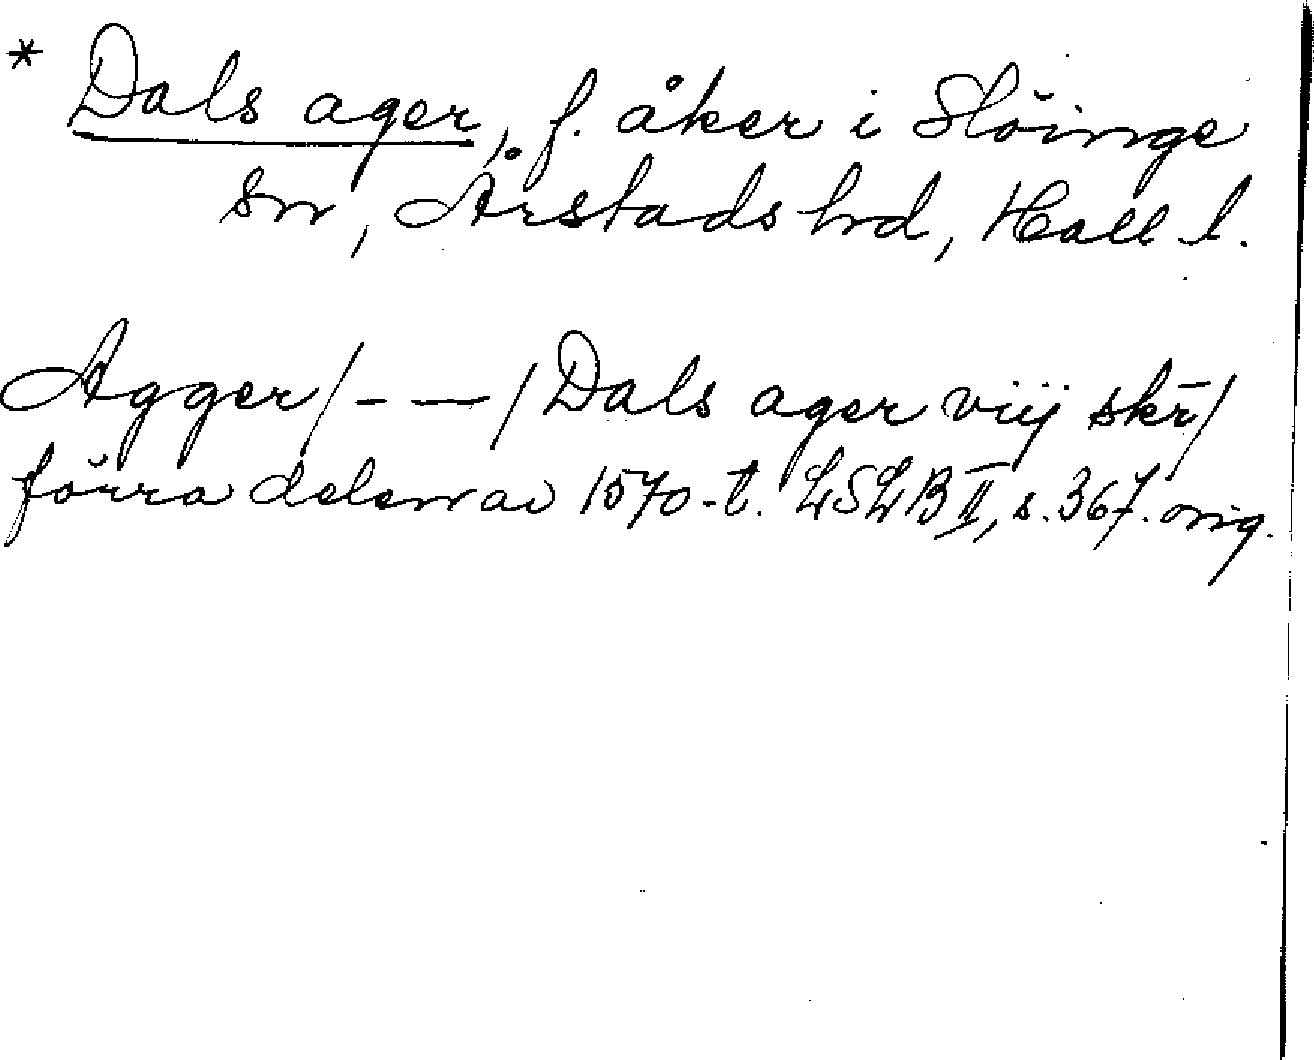 * Dals ager, f. åker i Slöinge
sn, Årstads hrd, Hall l.
Agger/- — / Dals ager viij skr̄/
förra delen av 1570-t. LSLB II, s. 367. orig.